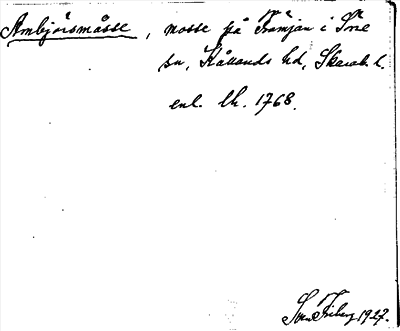 Ambjörsmåsse, mosse på Råmjan i Söne
sn, Kållands hd, Skarab. l.
enl. lh. 1768.
Sven Friberg 1927.